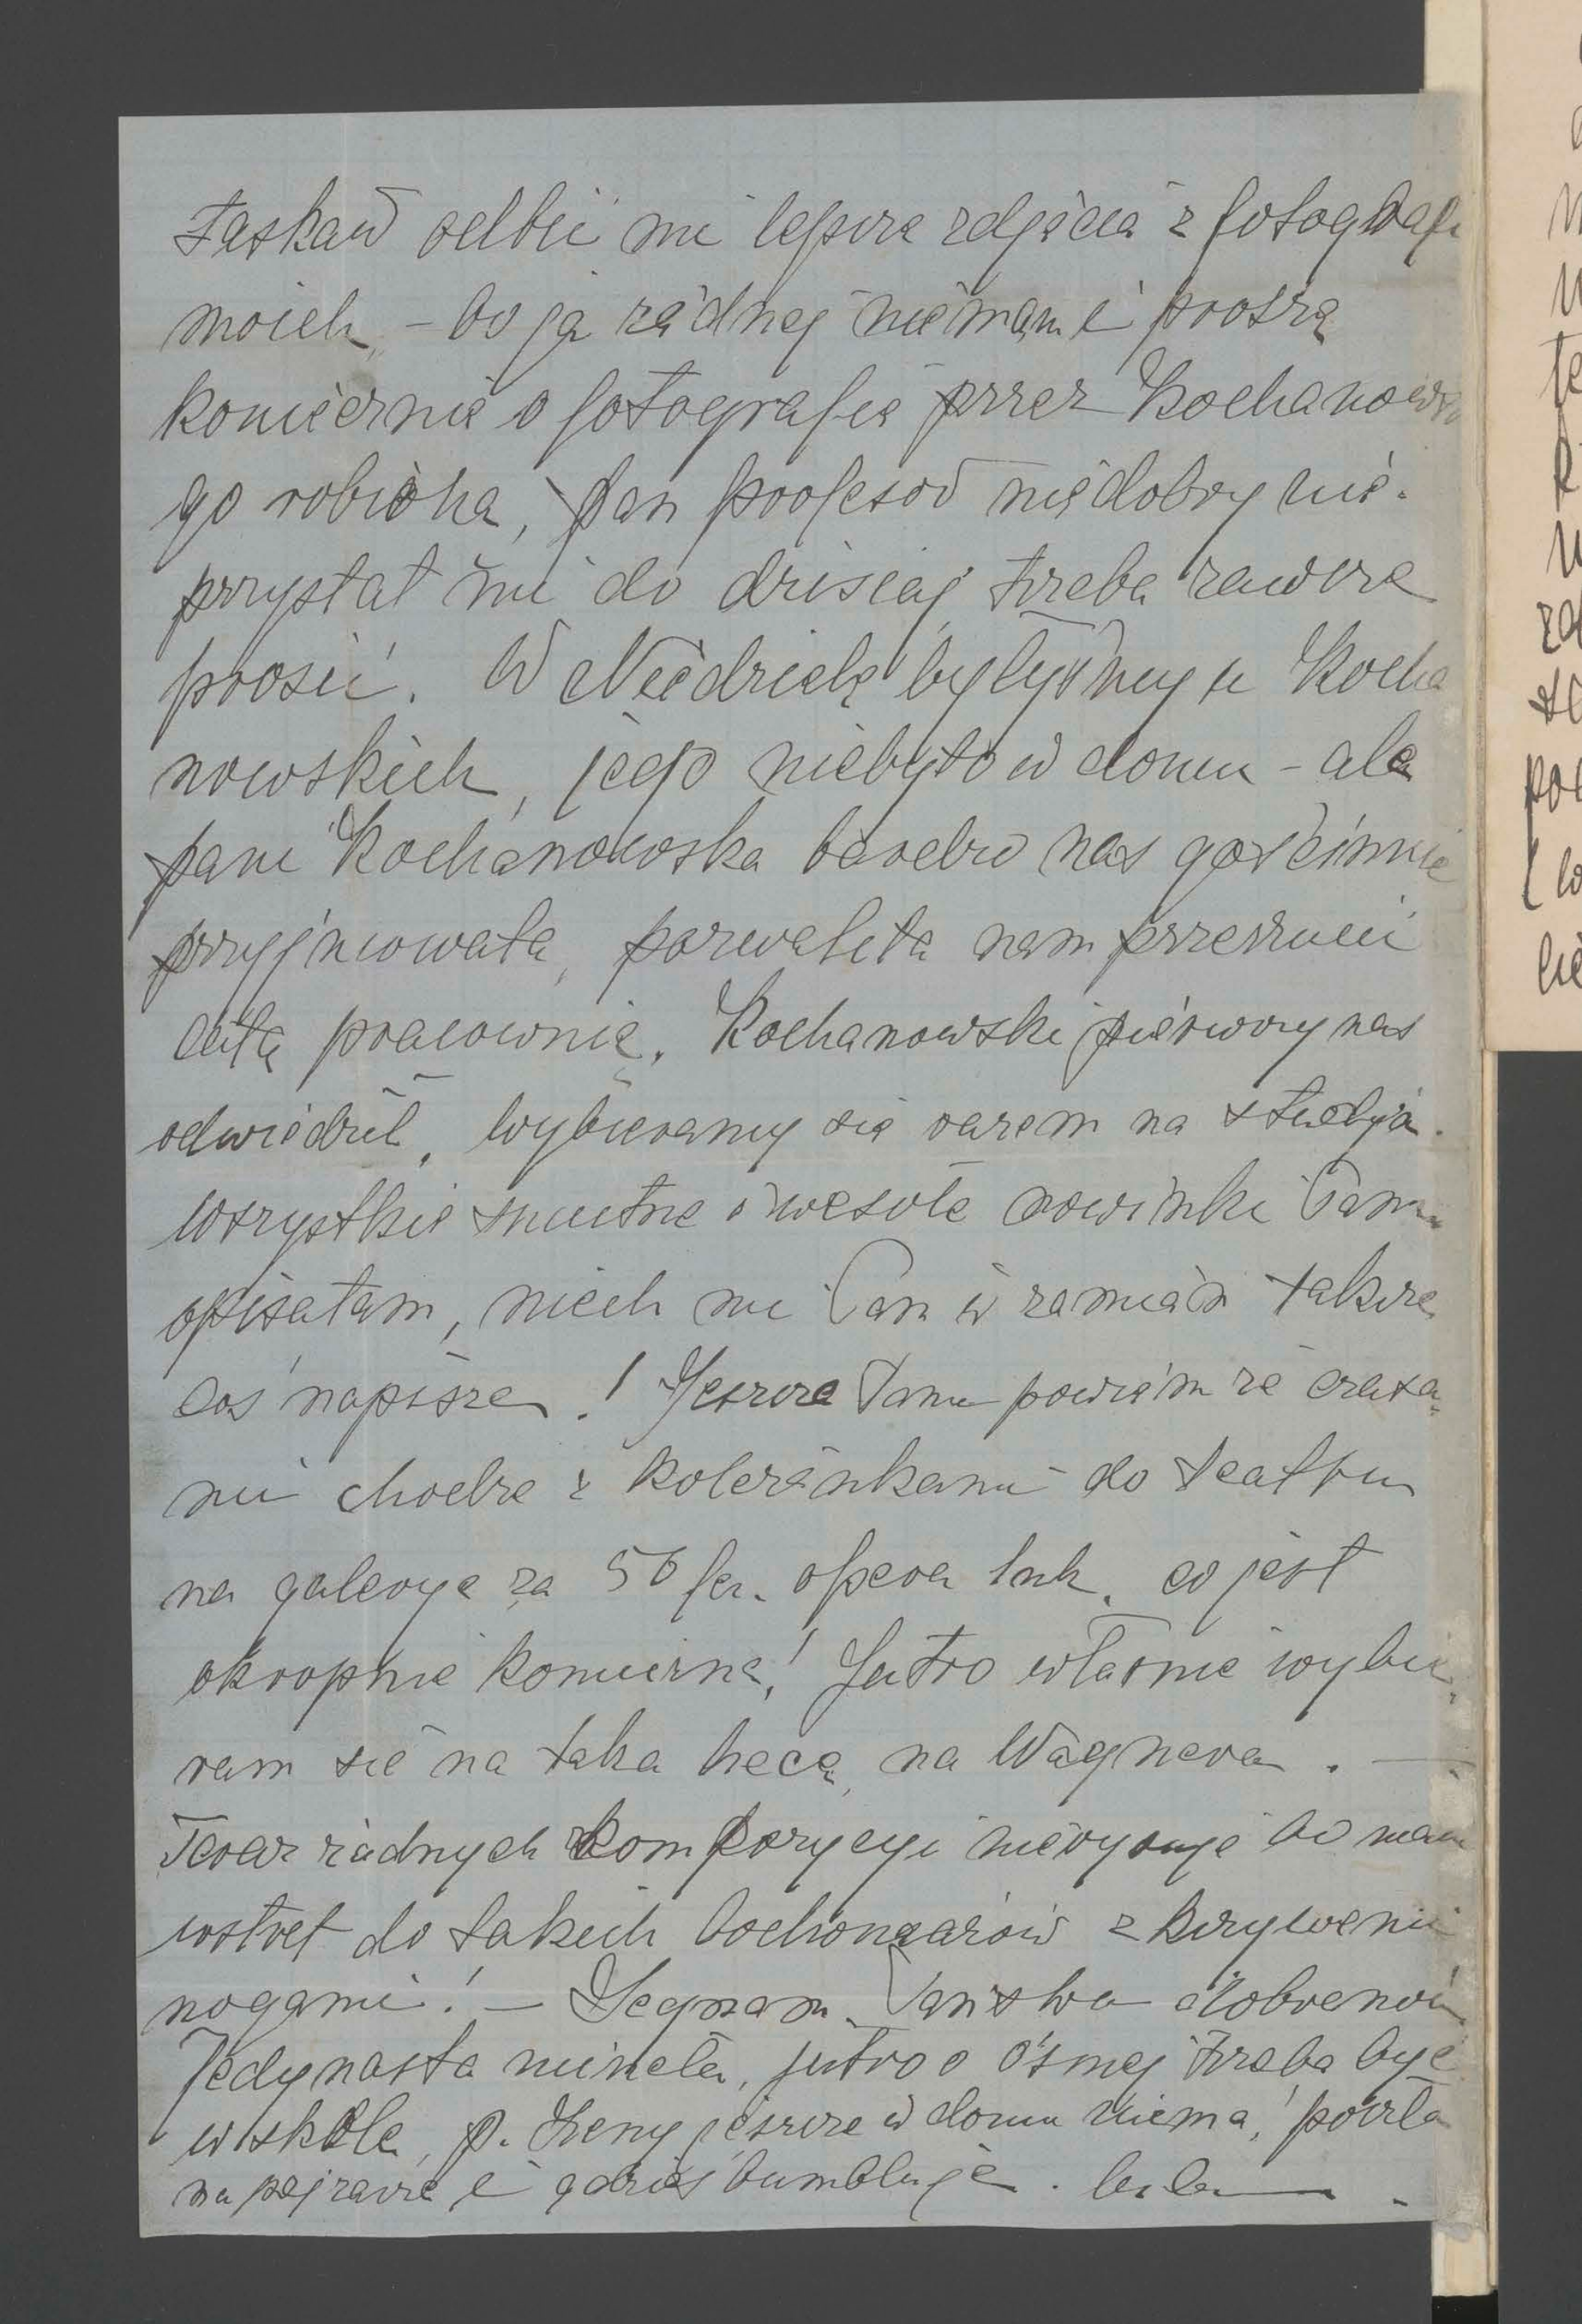 łaskaw odbić mi lepsze zdjęcia z fotografi
moich, – bo ja żadnej niemam i proszę
koniecznie o fotografię przez Kochanowskie
go robioną, pan profesor niedobry nie
przysłał mi do dzisiaj trzeba zawsze
prosić. W Niedzielę byłyśmy u Kocha
nowskich, jego niebyło w domu – ale
pani Kochanowska bardzo nas gościnnie
przyjmowała, pozwaliła nam przerzucić
całą pracownię. Kochanowski pierwszy nas
odwiedził, wybieramy się razem na studya.
Wszystkie smutne i wesołe nowinki Panu
opisałam, niech mi Pan w zamian także
coś napisze! Jeszcze Panu powiem że czasa
mi chodzę z koleżankami do teatru
na galeryę za 50 fen. opera 1 mk. co jest
okropnie komiczne! Jutro właśnie wybie
ram się na taką hecę na Wagnera. —
Teraz żadnych kompozycyi nierysuję bo mam
wstręt do takich bochomazów z krzywemi
nogami! – Żegnam Państwa dobranoc
Jedynasta mineła, jutro o ósmej trzeba być
w szkole, p. Leny jeszcze w domu niema, poszła
na pejzaże i gdzieś bumbluje.